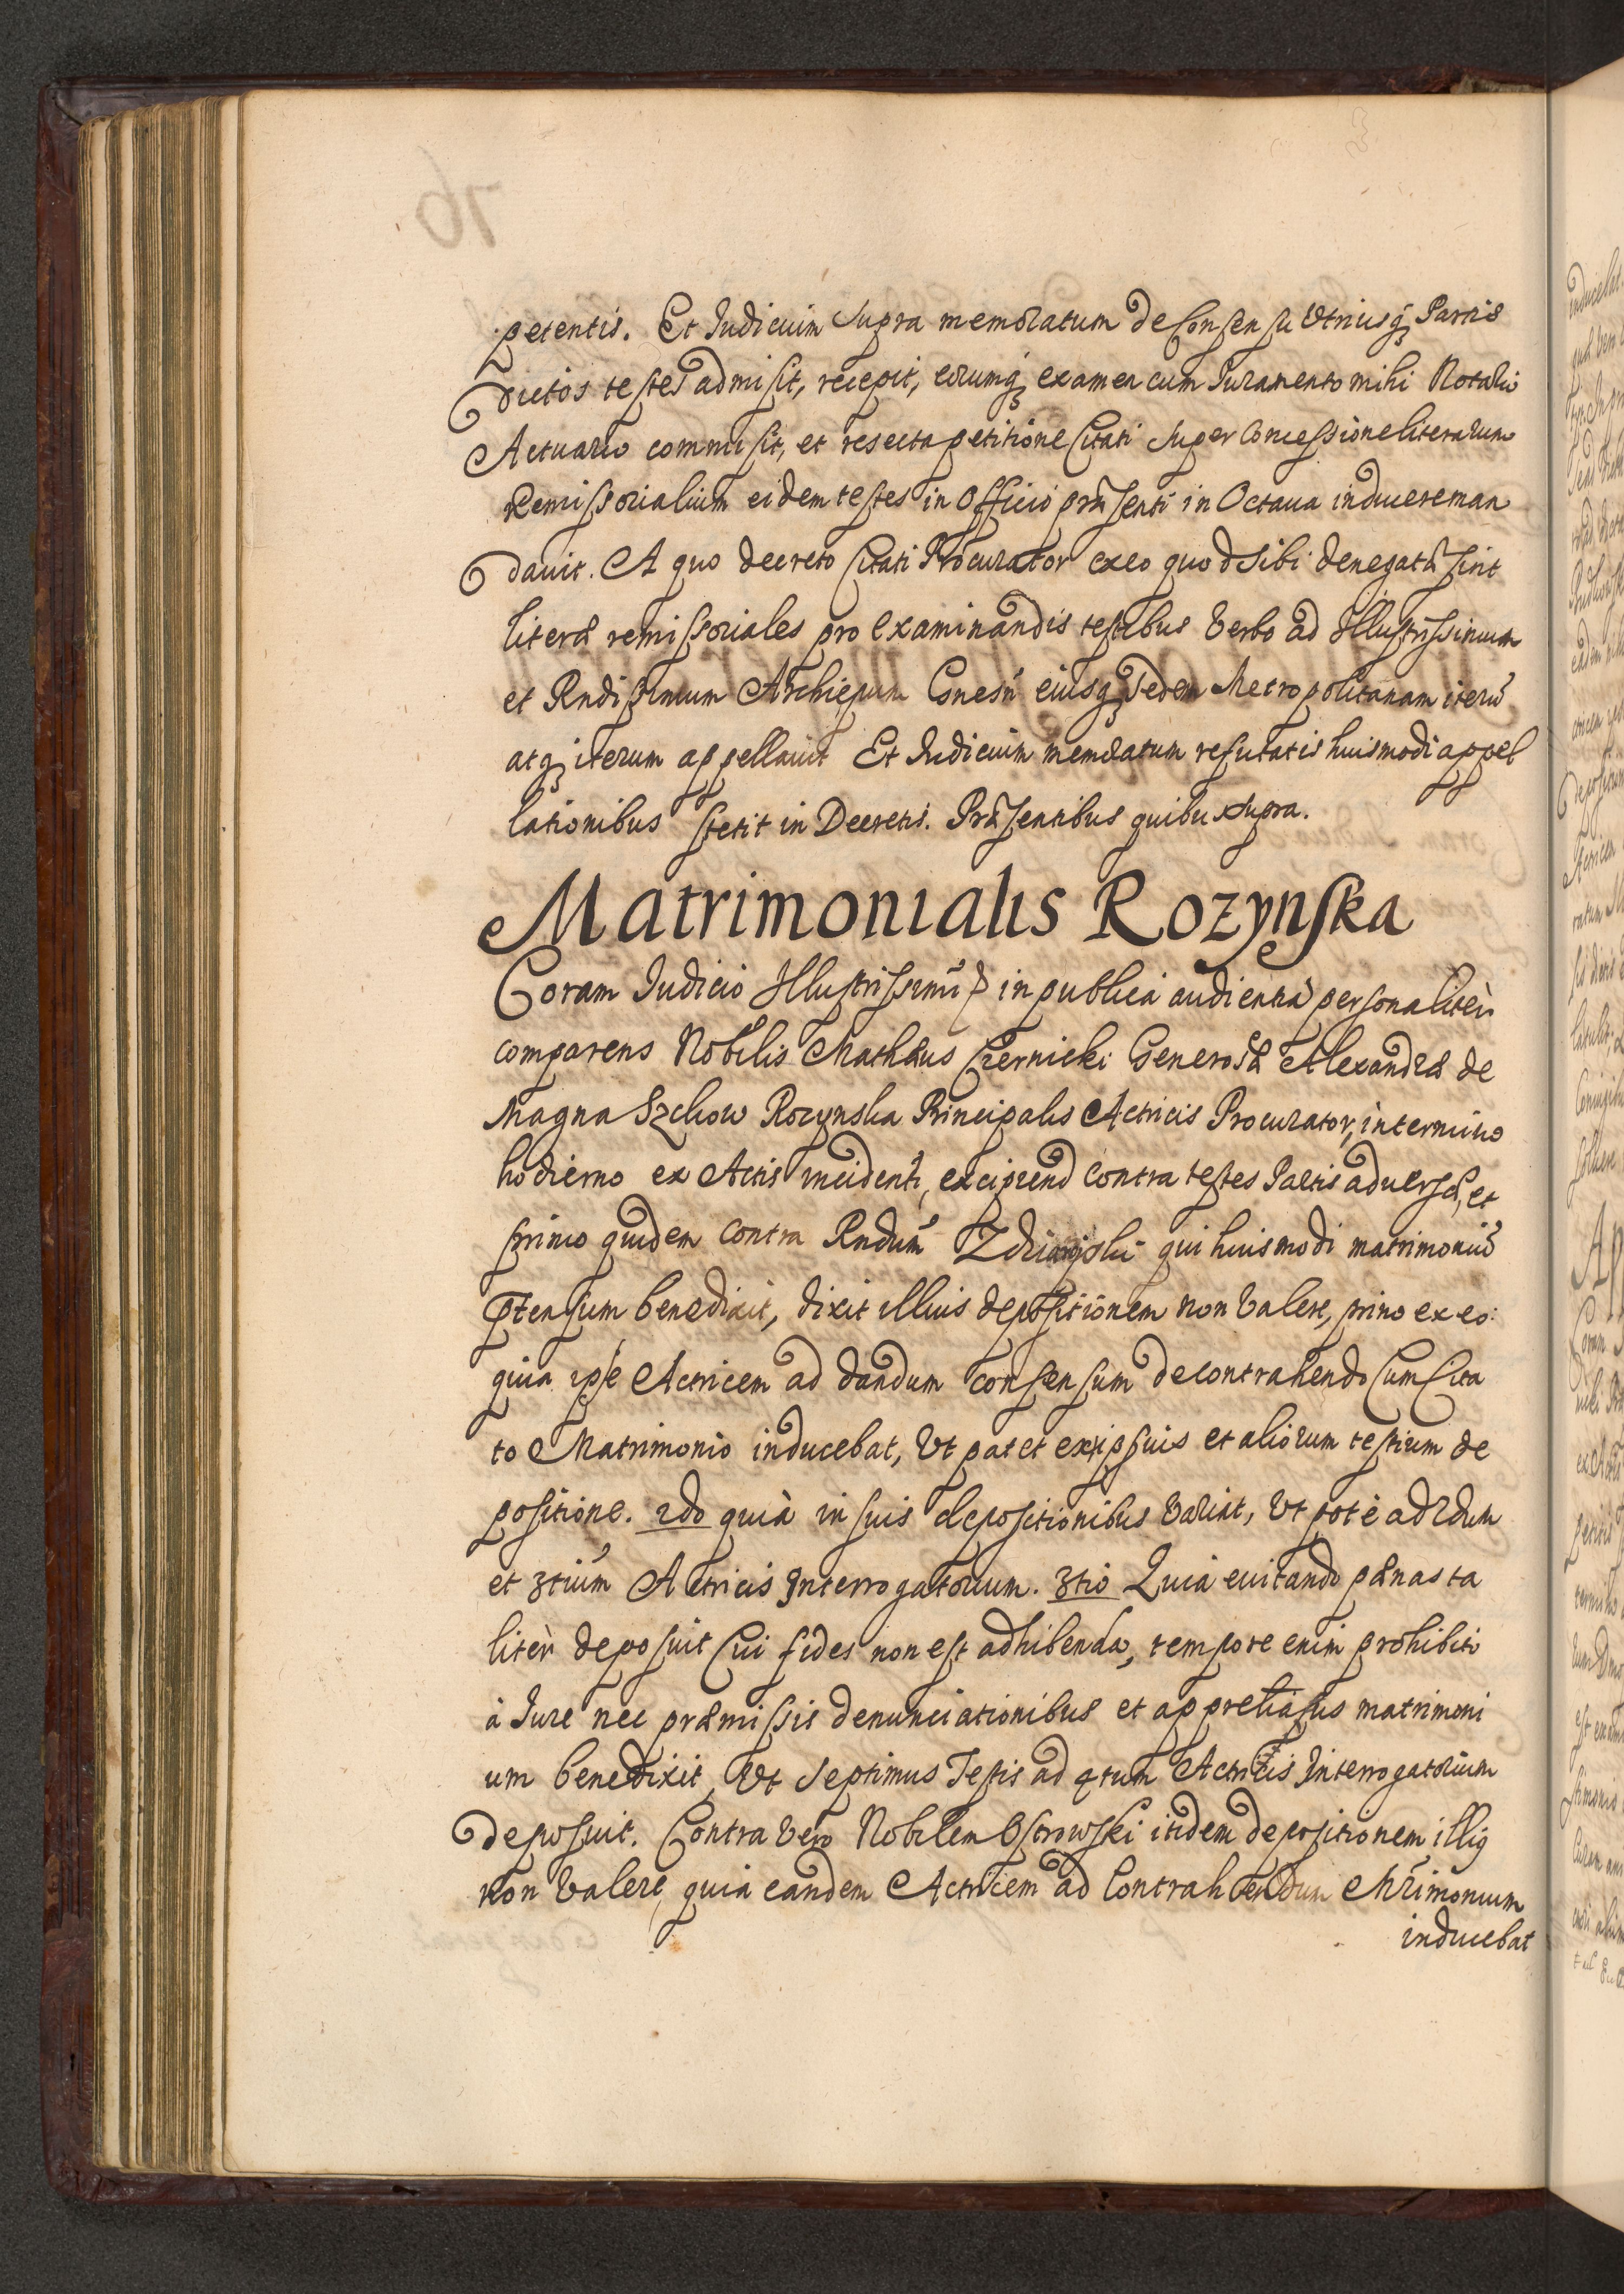 petentis. Et Iudicium supra memoratum de Consensu Vtriusq3 Partis
dictos testes admisit, recepit, eorumq3 examen cum Iuramento mihi Notario
Actuario commisit, et reiecta petitione Citati super concessione literarum
Remissorialium eidem testes in Officio præsenti in Octaua inducere man
dauit. A quo decreto Citati Procurator ex eo quod sibi denegatæ sint
literæ remissoriales pro examinandis testibus Verbo ad Illustrissimum
et Rndissimum Archiepum Gnesñ eiusq3 sedem Metropolitanam iterũ
atq3 iterum appellauit Et Iudicium memoratum refutatis huismodi appel
lationibus stetit in Decretis. Præsentibus quibus supra.
Matrimonialis Rozynska
Coram Iudicio Illustrissimi in publica audientia personaliter
comparens Nobilis Mathæus Czernicki Generosæ Alexandræ de
Magna Szchow Rozynska Principalis Actricis Procurator, in termino
hodierno ex Actis incidenti, excipiend contra testes Partis aduersæ, et
primo quidem contra Rndum qui huismodi matrimoniũ
ptensum benedixit, dixit illius depositionem non Valere, primo ex eo:
quia ipse Actricem ad dandum consensum de contrahendo Cum Cita
to Matrimonio inducebat, Vt patet ex ipsius et aliorum testium de
positione. 2do quia in suis depositionibus Variat, Vt pote ad 2dum
et 3tium Actricis Interrogatorium. 3tio Quia euitando pænas ta
liter deposuit Cui fides non est adhibenda, tempore enim prohibiti
à Iure nec præmissis denunciationibus et matrimoni
um benedixit, Vt Septimus Testis ad 4tum Actricis Interrogatorium
deposuit. Contra Vero Nobilem Ostrowski itidem depositionem illig
non Valere, quia eandem Actricem ad Contrahendum Mrimonium
inducebat